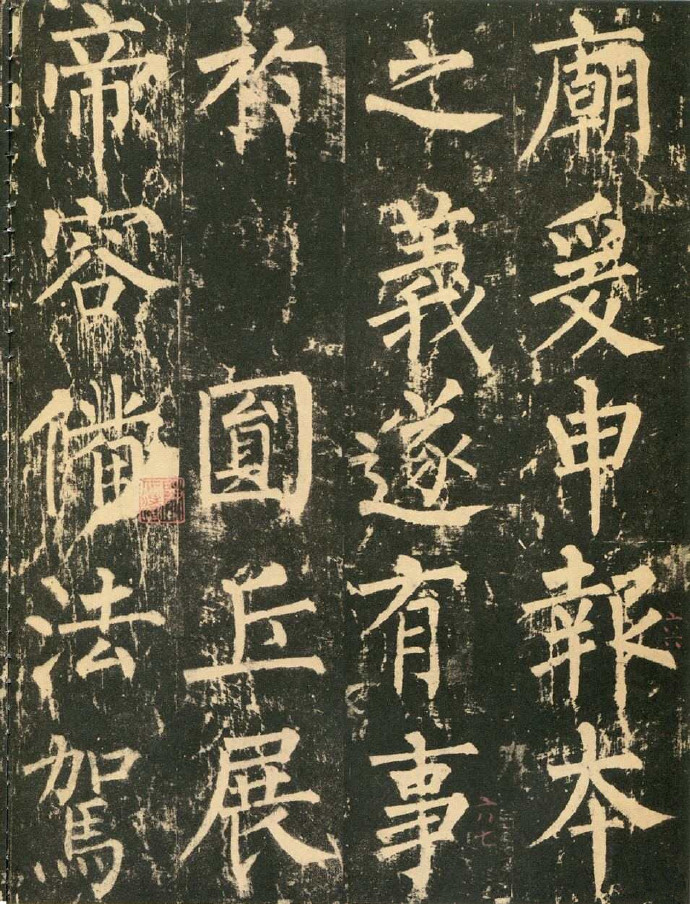 廟爰申報本
之義遂有事
於圓丘展
帝容備法駕